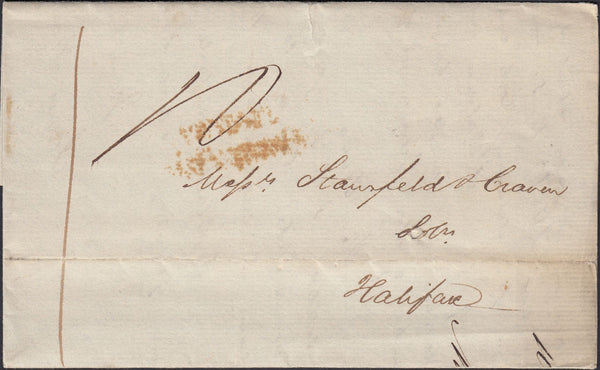 Messrs. Stansfeld & Craven
Solrs.
Halifax